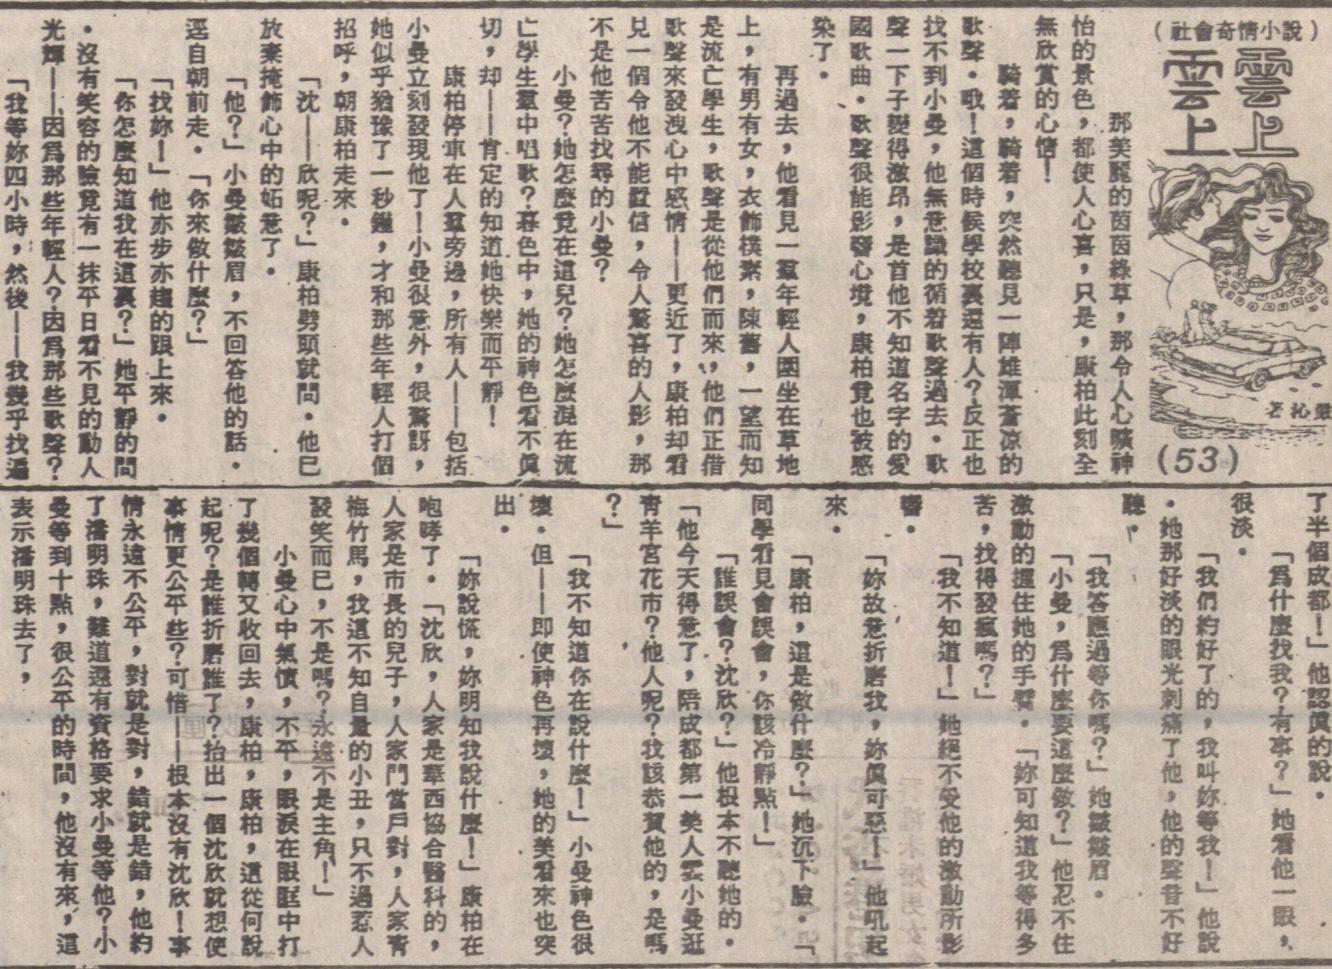 (社會奇情小說)
雲上雲上
嚴沁著
(53)
那美麗的茵茵綠草，那令人心曠神
怡的景色，都使人心喜，只是，康柏此刻全
無欣賞的心情！
騎着，騎着，突然聽見一陣雄渾蒼凉的
歌聲。哦！這個時候學校裏還有人？反正也
找不到小曼，他無意識的循着歌聲過去。歌
聲一下子變得激昂，是首他不知道名字的愛
國歌曲。歌聲很能影響心境，康柏竟也被感
染了。
再過去，他看見一羣年輕人圍坐在草地
上，有男有女，衣飾樸素，陳舊，一望而知
是流亡學生，歌聲是從他們而來，他們正借
歌聲來發洩心中感情——更近了，康柏却看
見一個令他不能置信，令人驚喜的人影，那
不是他苦苦找尋的小曼？
小曼？她怎麼竟在這兒？她怎麼混在流
亡學生羣中唱歌？暮色中，她的神色看不眞
切，却——肯定的知道她快樂而平靜！
康柏停車在人羣旁邊，所有人——包括
小曼立刻發現他了！小曼很意外，很驚訝，
她似乎猶豫了一秒鐘，才和那些年輕人打個
招呼，朝康柏走來。
「沈——欣呢？」康柏劈頭就問。他已
放棄掩飾心中的妬意了。
「他？」小曼皺皺眉，不回答他的話。
逕自朝前走。「你來做什麼？」
「找妳！」他亦步亦趨的跟上來。
「你怎麼知道我在這裏？」她平靜的問
。沒有笑容的臉竟有一抹平日看不見的動人
光輝——因爲那些年輕人？因爲那些歌聲？
「我等妳四小時，然後——我幾乎找遍
了半個成都！」他認眞的說。
「爲什麼找我？有事？」她看他一眼，
很淡。
「我們約好了的，我叫妳等我！」他說
。她那好淡的眼光刺痛了他，他的聲音不好
聽。
「我答應過等你嗎？」她皺皺眉。
「小曼，爲什麼要這麼做？」他忍不住
激動的握住她的手臂。「妳可知道我等得多
苦，找得發瘋嗎？」
「我不知道！」她絕不受他的激動所影
響。
「妳故意折磨我，妳眞可惡！」他吼起
來。
「康柏，這是做什麼？」她沉下臉。「
同學看見會誤會，你該冷靜點！」
「誰誤會？沈欣？」他根本不聽她的。
「他今天得意了，陪成都第一美人雲小曼逛
青羊宮花市？他人呢？我該恭賀他的，是嗎
？」
「我不知道你在說什麼！」小曼神色很
壞。但——即使神色再壞，她的美看來也突
出。
「妳說慌，妳明知我說什麼！」康柏在
咆哮了。「沈欣，人家是華西協合醫科的，
人家是市長的兒子，人家門當戶對，人家青
梅竹馬，我這不知自量的小丑，只不過惹人
發笑而已，不是嗎？永遠不是主角！」
小曼心中氣憤，不平，眼淚在眼眶中打
了幾個轉又收回去，康柏，康柏，這從何說
起呢？是誰折磨誰了？抬出一個沈欣就想使
事情更公平些？可惜——根本沒有沈欣！事
情永遠不公平，對就是對，錯就是錯，他約
了潘明珠，難道還有資格要求小曼等他？小
曼等到十點，很公平的時間，他沒有來，這
表示潘明珠去了，